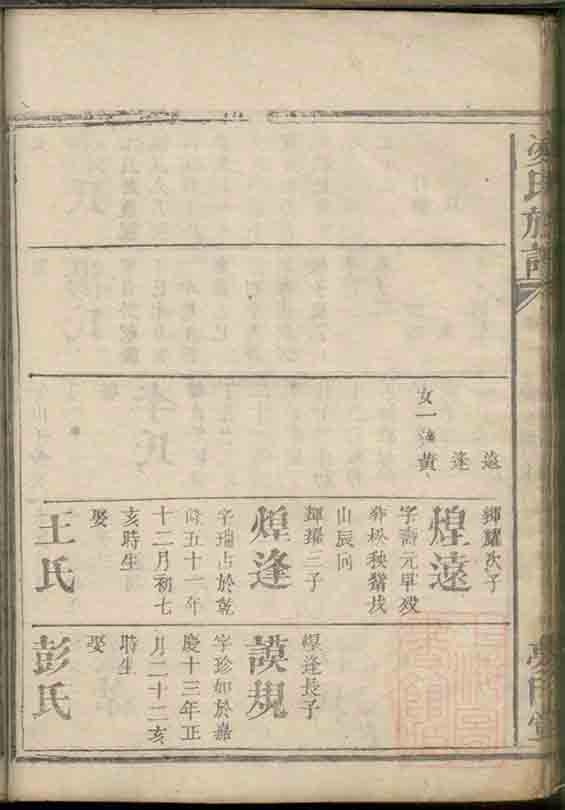 凌氏族譜
遠
逢
女一適黃
輝耀次子
煌遠
字壽元早歿
葬松秧豬伐
山辰向
輝耀三子
煌逢
字瑞占於乾
隆五十一年
十二月初七
亥時生
娶
王氏
煌逢長子
謨規
字珍如於嘉
慶十三年正
月二十二亥
時生
娶
彭氏